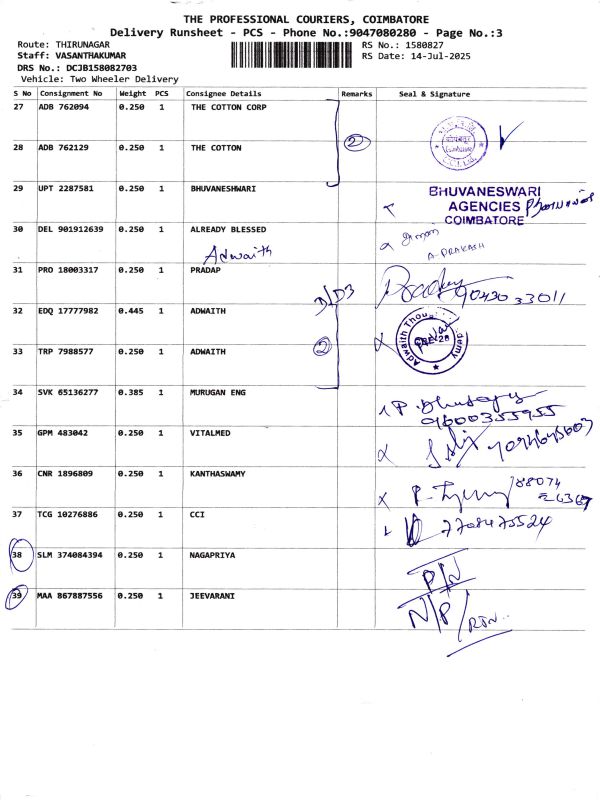 THE PROFESSIONAL COURIERS, COIMBATORE
Delivery Runsheet - PCS - Phone No.:9047080280 - Page No.:3
Route: THIRUNAGAR
RS No.: 1580827
Staff: VASANTHAKUMAR
RS Date: 14-Jul-2025
DRS No.: DCJB158082703
Vehicle: Two Wheeler Delivery
S No Consignment No Weight PCS Consignee Details Remarks Seal & Signature
27 ADB 762094 0.250 1 THE COTTON CORP
2
28 ADB 762129 0.250 1 THE COTTON
29 UPT 2287581 0.250 1 BHUVANESHWARI
BHUVANESWARI
AGENCIES
COIMBATORE
30 DEL 901912639 0.250 1 ALREADY BLESSED
A-PRAKASH
Adwaith
31 PRO 18003317 0.250 1 PRADAP
9043033011
32 EDQ 17777982 0.445 1 ADWAITH
Adwaith Thou
CBE-28
33 TRP 7988577 0.250 1 ADWAITH
2
34 SVK 65136277 0.385 1 MURUGAN ENG
9600355955
35 GPM 483042 0.250 1 VITALMED
36 CNR 1896809 0.250 1 KANTHASWAMY
88074
26367
37 TCG 10276886 0.250 1 CCI
7708475524
38 SLM 374084394 0.250 1 NAGAPRIYA
P/N
39 MAA 867887556 0.250 1 JEEVARANI
N/P/RTN..